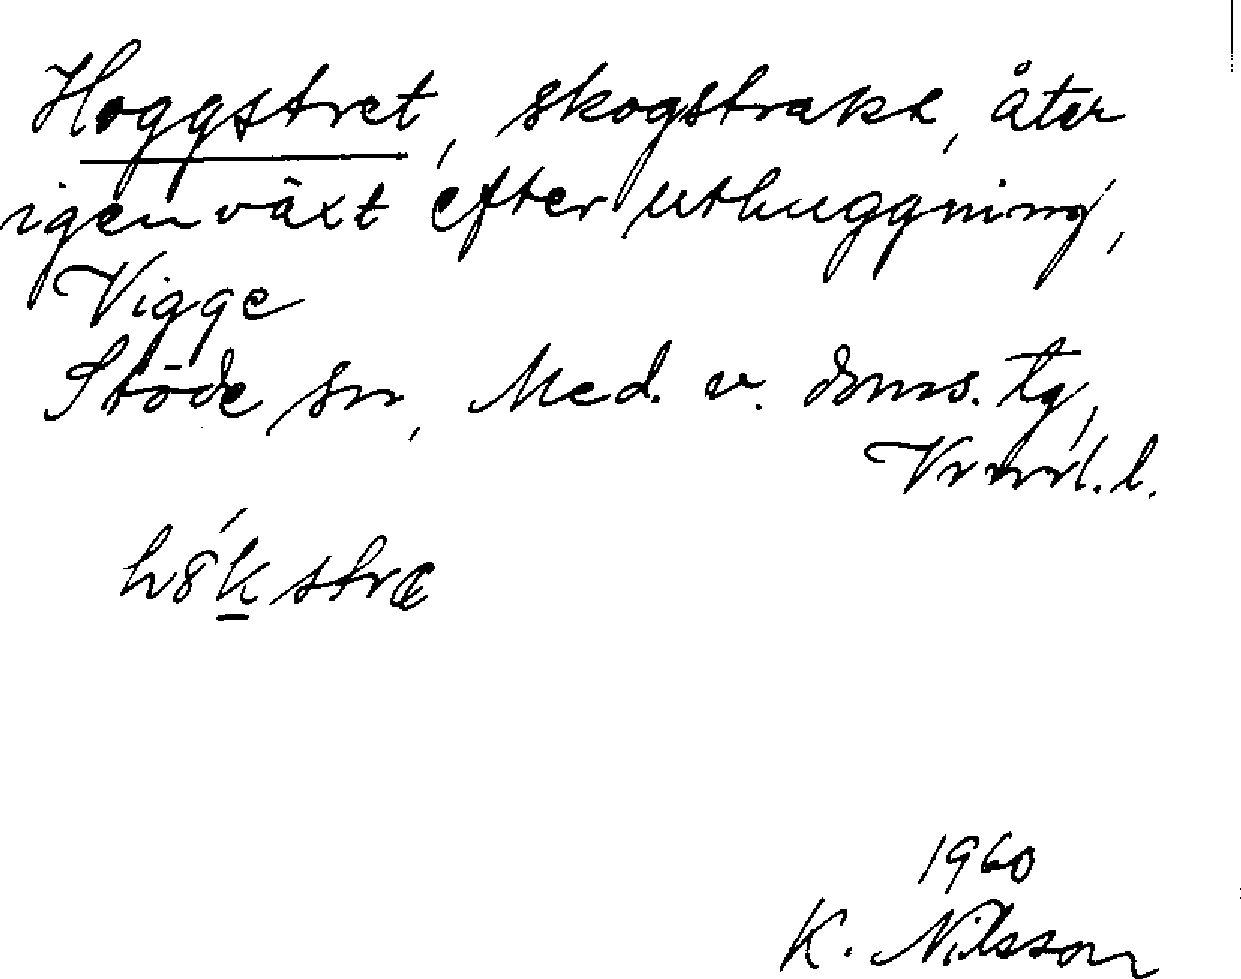 Hoggstret, skogstrakt, åter
igenväxt efter uthuggning,
Vigge
Stöde sn, Med. v. doms. tg,
Vrml. l.
hökstre
1960
K. Nilsson